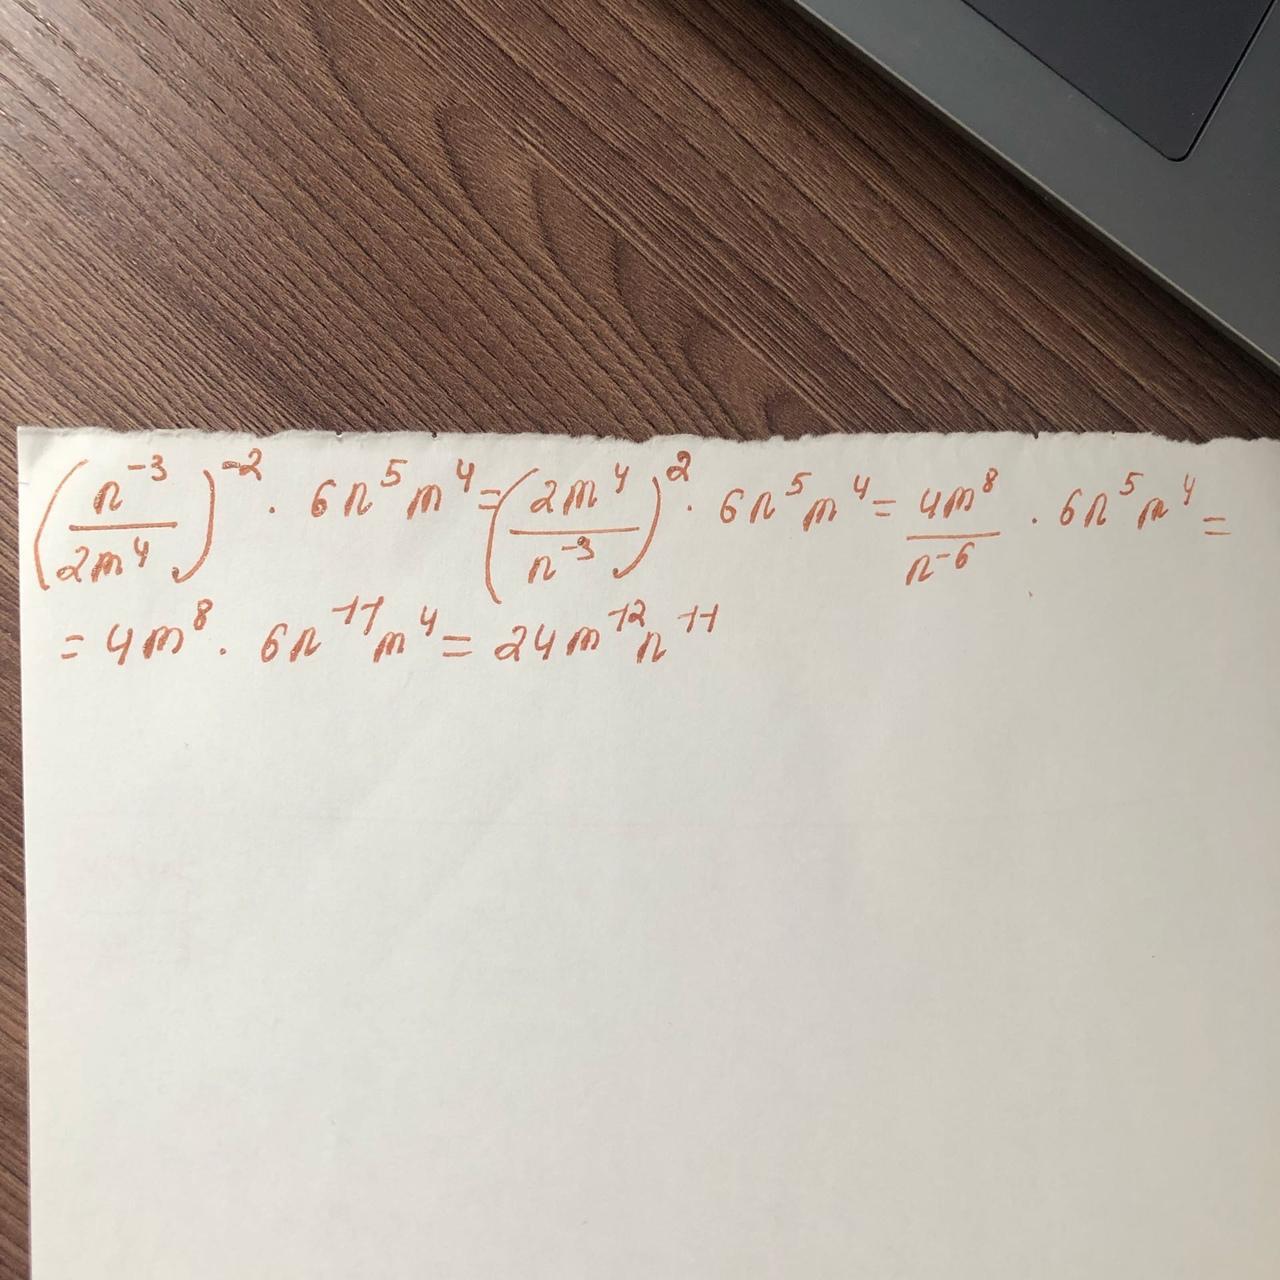 (n⁻³/2m⁴)⁻² · 6n⁵m⁴ = (2m⁴/n⁻³)² · 6n⁵m⁴ = 4m⁸/n⁻⁶ · 6n⁵m⁴ =
= 4m⁸ · 6n¹¹m⁴ = 24m¹²n¹¹